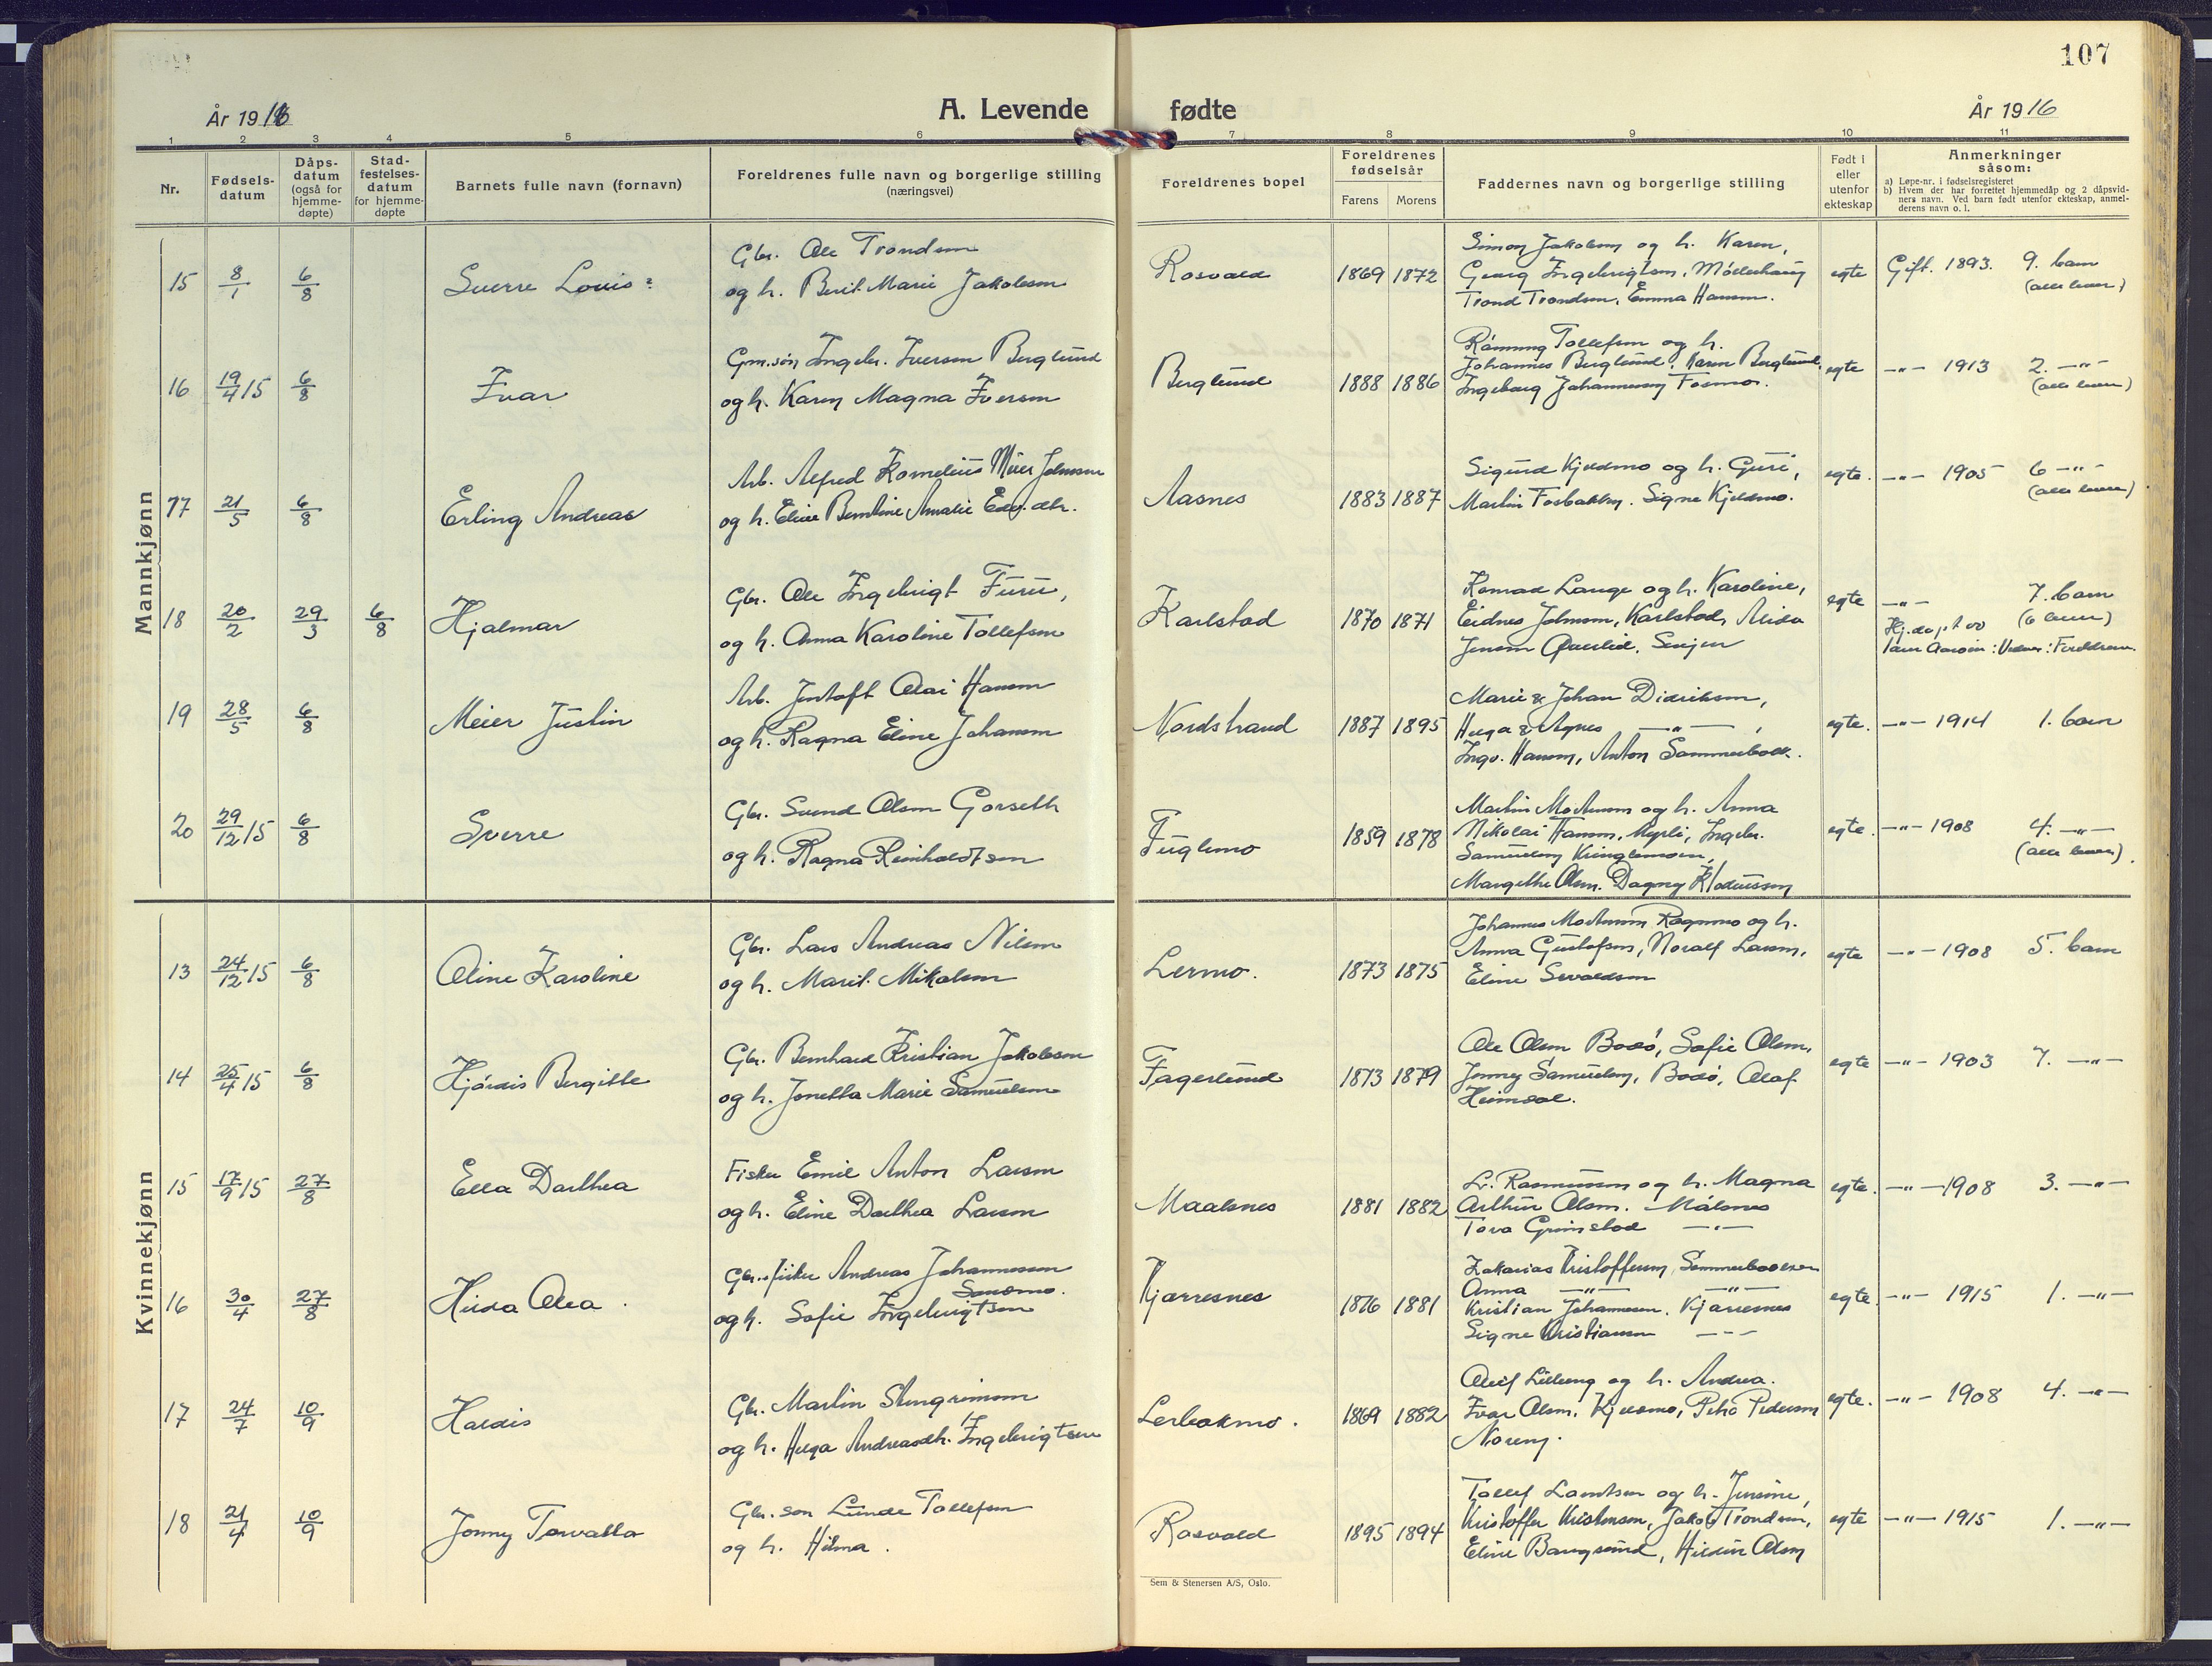 107
År 1916
A. Levende fødte
År 1916
1 2 3 4 5 6 7 8 9 10 11
Nr.
Fødsels-
datum
Dåps-
datum
(også for
hjemme-
døpte)
Stad-
festelses-
datum
for hjemme-
døpte
Barnets fulle navn (fornavn)
Foreldrenes fulle navn og borgerlige stilling
(næringsvei)
Foreldrenes bopel
Foreldrenes
fødselsår
Farens Morens
Faddernes navn og borgerlige stilling
Født i
eller
utenfor
ekteskap
Anmerkninger
såsom:
a) Løpe-nr. i fødselsregisteret
b) Hvem der har forrettet hjemmedåp og 2 dåpsvid-
ners navn. Ved barn født utenfor ekteskap, anmel-
derens navn o. l.
Mannkjønn
15 8/1 6/8 Sverre Louis
Gbr. Ole Trondsen
og h. Berit Marie Jakobsen
Rosvold 1869 1872
Simon Jakobsen og h. Karen,
Georg Ingebrigtsen, Möllerhaug
Trond Trondsen, Emma Hansen.
egte Gift. 1893. 9. barn
(alle lever)
16 19/4 15 6/8 Ivar
Gm.søn Ingebr. Iversen Berglund
og h. Karen Magna Iversen
Berglund 1888 1886
Tollefsen og h.
Johannes Berglund, Karen Berglund,
Ingeborg Johannesen Fosmo.
egte -"- 1913 2. -"-
(alle lever)
17 21/5 6/8 Erling Andreas
Arb. Alfred Kornelius Meier Johnsen
og h. Eline Berntine Amalie Edv.dtr.
Aasnes 1883 1887
Sigurd Kjeldmo og h. Guri,
Martin Fosbakken. Signe Kjeldmo.
egte. -"- 1905 6 -"-
(alle lever)
18 20/2 29/3 6/8 Hjalmar
Gbr. Ole Ingebrigt Furu,
og h. Anna Karoline Tollefsen
Karlstad 1870 1871
Konrad Lange og h. Karoline,
Eidnes Johnsen, Karlstad, Alida
Jensen Senjen
egte -"- 7. barn
(6 lever)
Hj.døpt av
: Foreldrene.
19 28/5 6/8 Meier Justin
Arb. Jentoft Olai Hansen
og h. Ragna Eline Johansen
Nordstrand 1887 1895
Marie & Johan Didriksen,
Helga & Agnes -"- ,
Ingv. Hansen, Anton Sommerbakk.
egte. -"- 1914 1. barn
20 29/12 15 6/8 Sverre
Gbr. Svend Olsen Gorseth
og h. Ragna Reinholdtsen
Fuglemo 1859 1878
Martin Mortensen og h. Anna
Nikolai Hansen, Myrli, Ingebr.
Samuelsen Kringlemoen,
Margethe Olsen. Dagny Klodiussen
egte. -"- 1908 4. -"-
(alle lever).
Kvinnekjønn
13 24/12 15 6/8 Oline Karoline
Gbr. Lars Andreas Nilsen
og h. Marit Mikalsen
Lermo. 1873 1875
Johannes Mortensen Rognmo og h.
Anna Gustafsen, Noralf Larsen,
Eline Sevaldsen
egte -"- 1908 5. barn
14 25/4 15 6/8 Hjördis Bergitte
Gbr. Bernhard Kristian Jakobsen
og h. Jonetta Marie Samuelsen
Fagerlund 1873 1879
Ole Olsen Bodö, Sofie Olsen,
Jenny Samuelsen, Bodö, Olaf
Heimdal.
egte -"- 1903 7. -"-
15 17/9 15 27/8 Ella Dorthea
Fisker Emil Anton Larsen
og h. Eline Dorthea Larsen
Maalsnes 1881 1882
L. Rasmussen og h. Magna
Arthur Olsen. Målsnes
Tora Grimstad -"-
egte. -"- 1908 3. -"-
16 30/4 27/8 Hilda Olea.
Gbr. & fisker Andreas Johannessen
Sandmo.
og h. Sofie Ingebrigtsen
Kjærresnes 1876 1881
Zakarias Kristoffersen, Sommerbakken
Anna -"- -"-
Kristian Johannesen. Kjærresnes
Signe Kristiansen -"-
egte. -"- 1915 1. -"-
17 24/7 10/9 Haldis
Gbr. Martin Stengrimsen
og h. Helga Andreasdtr. Ingebrigtsen
Lerbakmo. 1869 1882
Oluf Lilleeng og h. Andrea.
Ivar Olsen, Kjeldmo, Petra Pedersen
Noreng.
egte. -"- 1908 4. -"-
18 21/4 10/9 Jenny Torvalla
Gbr. søn Lunde Tollefsen
og h. Hilma.
Rosvold 1895 1894
Tollef Larntsen og h. Jensine,
Kristoffer Kristensen, Jakob Trondsen,
Eline Bangsund, Hildur Olsen
egte -"- 1915 1. -"-
Sem & Stenersen A/S, Oslo.